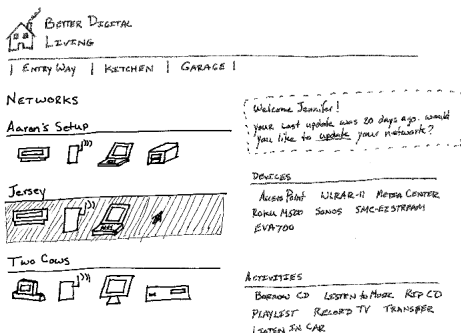 BETTER DIGITAL
LIVING
| ENTRY WAY | KITCHEN | GARAGE |
NETWORKS
Aaron's Setup
Jersey
Two Cows
Welcome Jennifer!
your last update was 20 days ago. would
you like to update your network?
DEVICES
Access Point WIRAR-11 MEDIA CENTER
ROKU M500 SONOS SMC-EZSTREAM
EVA700
ACTIVITIES
BORROW CD LISTEN to MUSIC RIP CD
PLAYLIST RECORD TV TRANSFER
LISTEN IN CAR